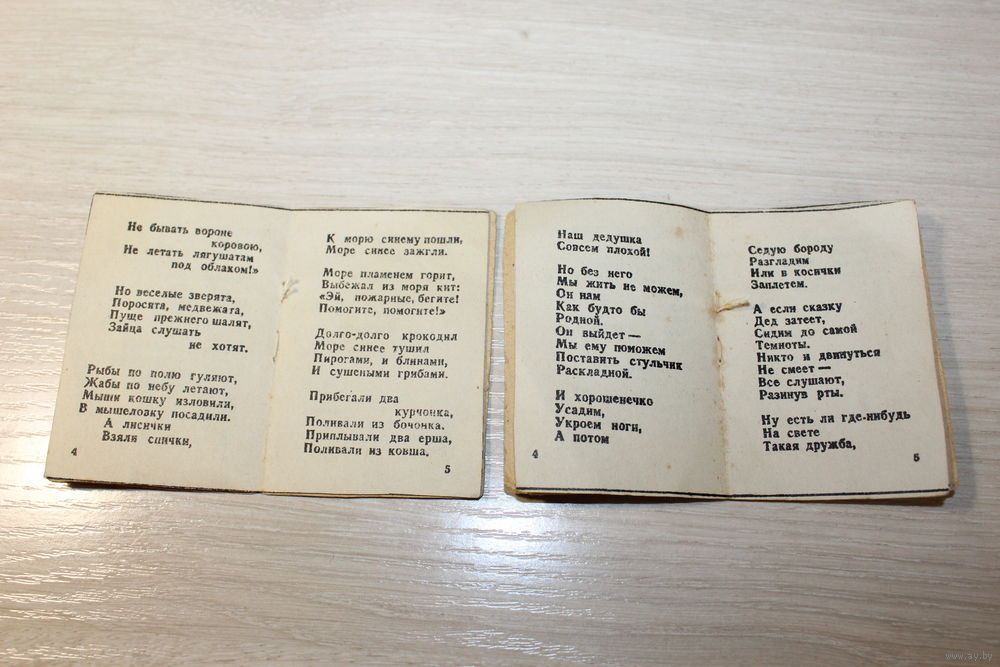 Не бывать вороне
коровою,
Не летать лягушатам
под облаком!»
Но веселые зверята,
Поросята, медвежата,
Пуще прежнего шалят,
Зайца слушать
не хотят.
Рыбы по полю гуляют,
Жабы по небу летают,
Мыши кошку изловили,
В мышеловку посадили.
А лисички
Взяли спички,
4
К морю синему пошли,
Море синее зажгли.
Море пламенем горит,
Выбежал из моря кит:
«Эй, пожарные, бегите!
Помогите, помогите!»
Долго-долго крокодил
Море синее тушил
Пирогами, и блинами,
И сушеными грибами.
Прибегали два
курчонка,
Поливали из бочонка.
Приплывали два ерша,
Поливали из ковша.
5
Наш дедушка
Совсем плохой!
Но без него
Мы жить не можем,
Он нам
Как будто бы
Родной.
Он выйдет —
Мы ему поможем
Поставить стульчик
Раскладной.
И хорошенечко
Усадим,
Укроем ноги,
А потом
4
Седую бороду
Разгладим
Или в косички
Заплетем.
А если сказку
Дед затеет,
Сидим до самой
Темноты.
Никто и двинуться
Не смеет —
Все слушают,
Разинув рты.
Ну есть ли где-нибудь
На свете
Такая дружба,
5
www.ay.by